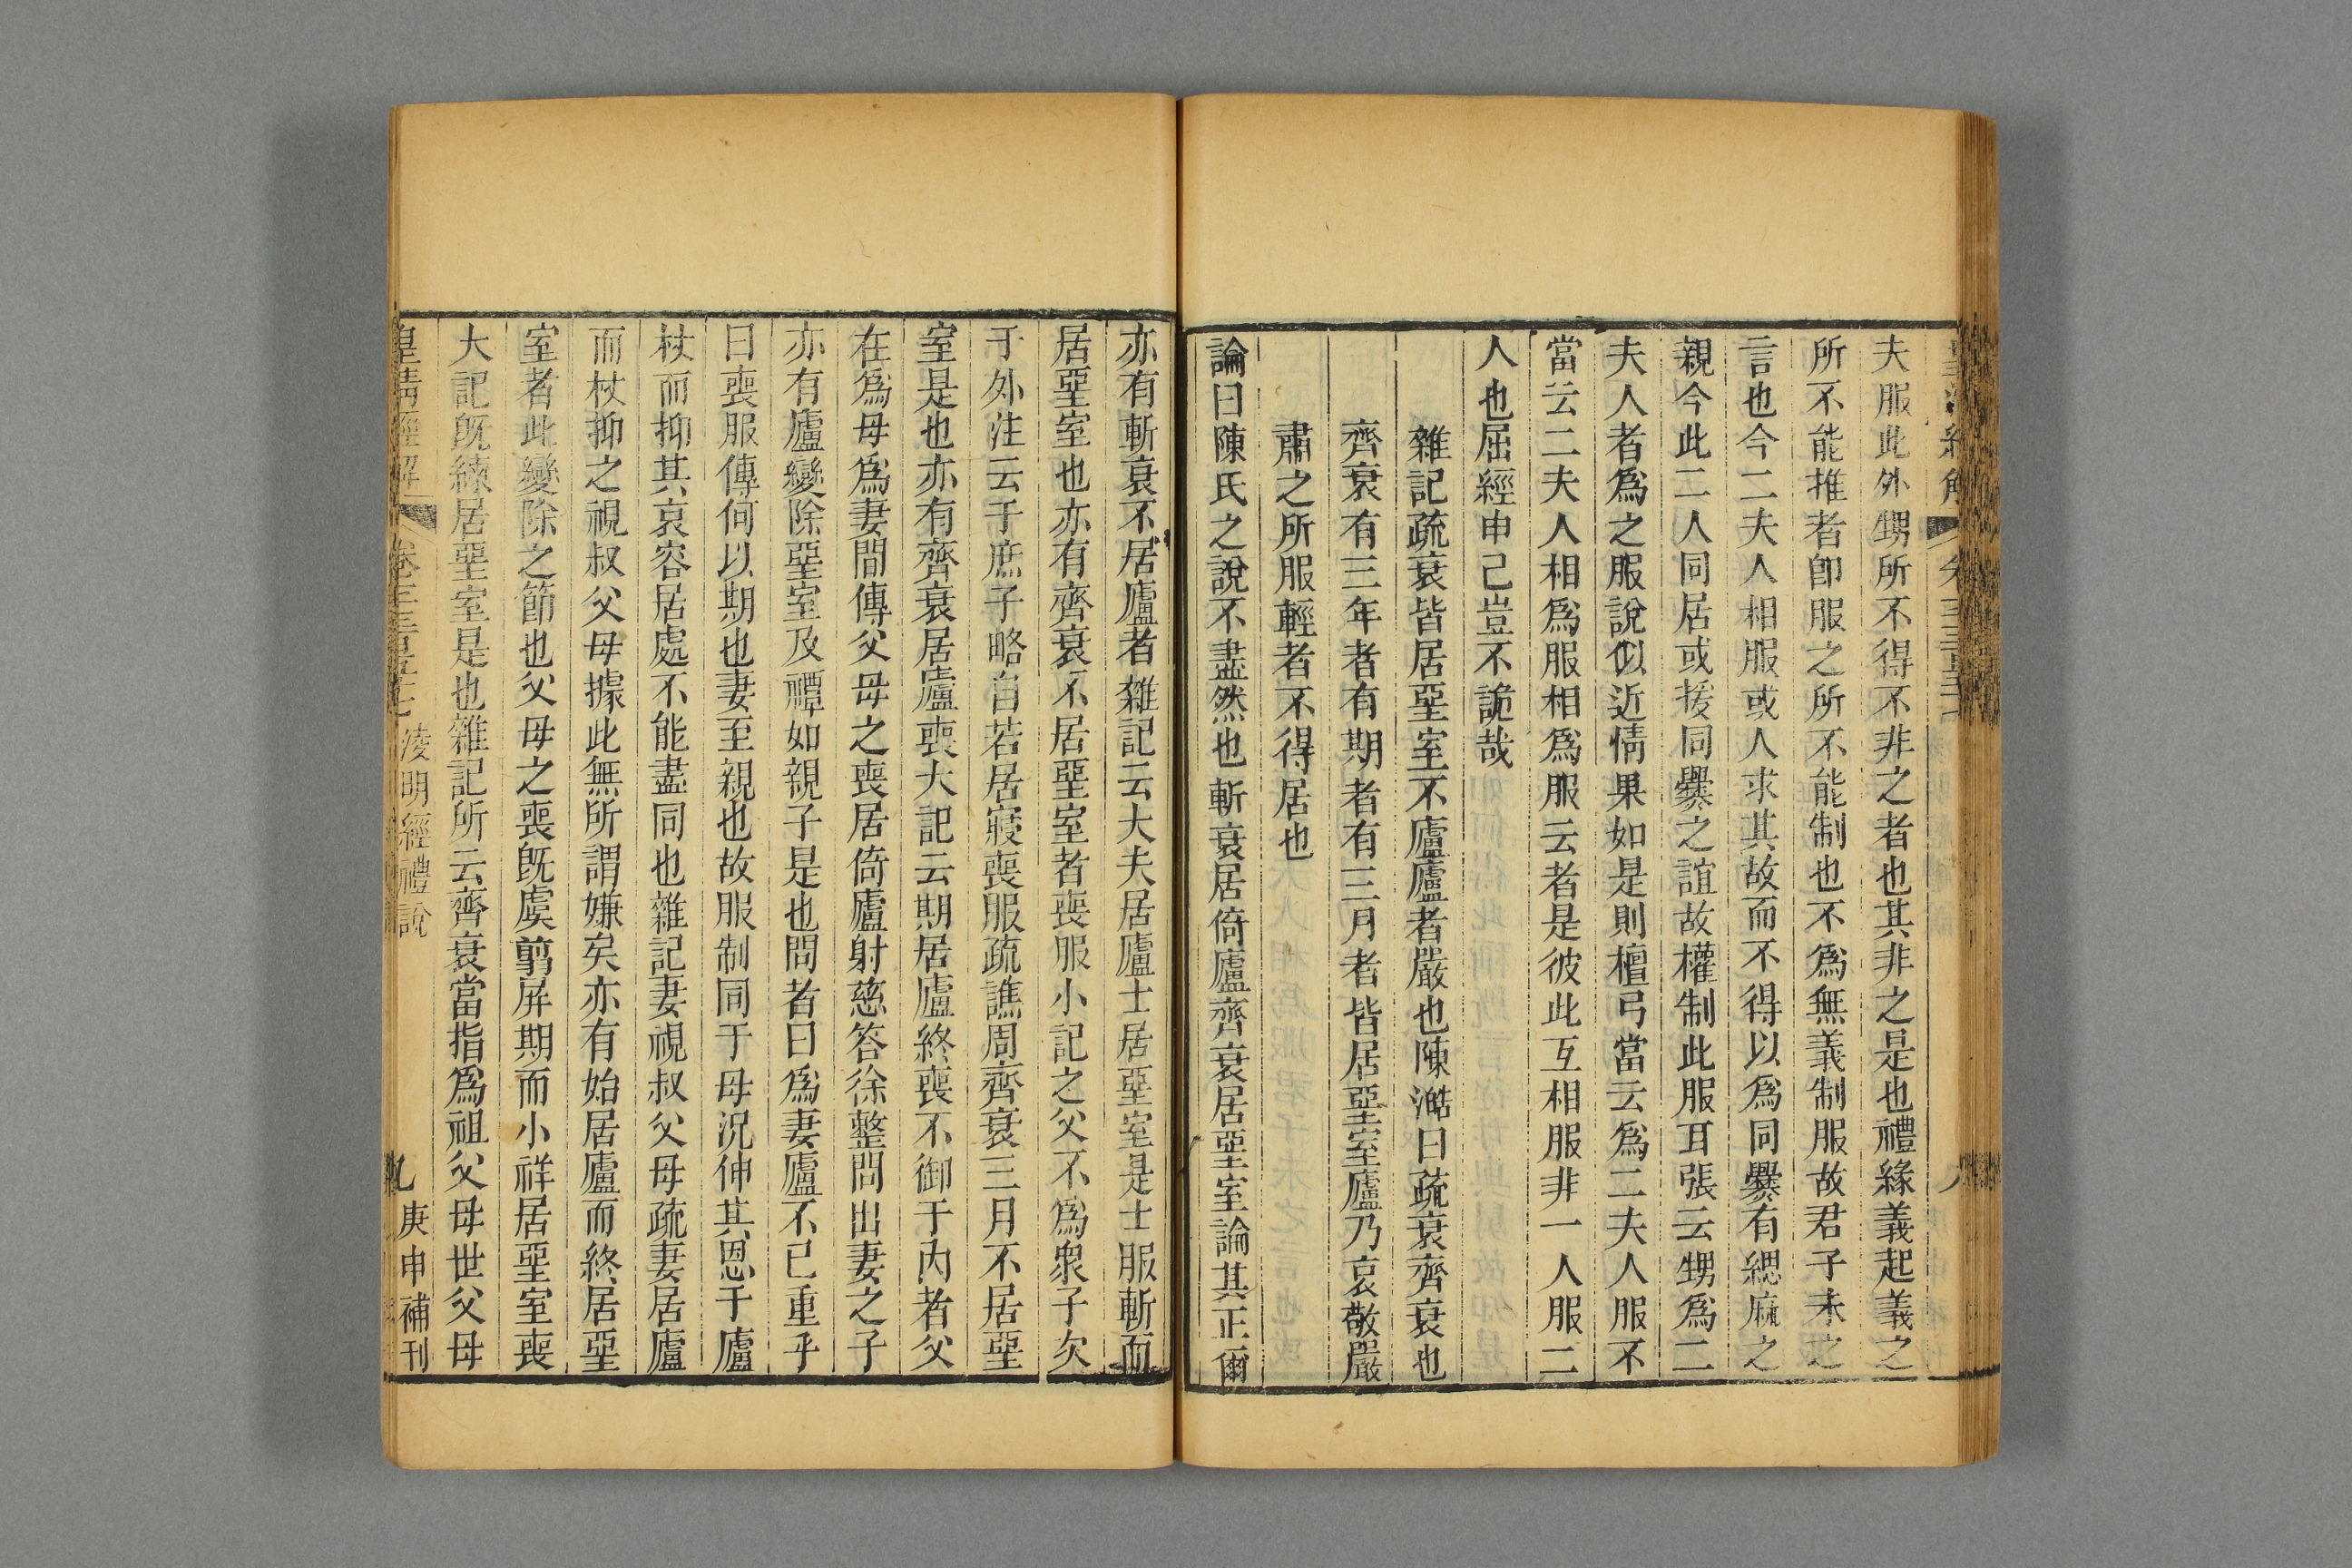 夫服此外甥所不得不非之者也其非之是也禮緣義起義之
所不能推者卽服之所不能制也不爲無義制服故君子未之
言也今二夫人相服或人求其故而不得以爲同爨有緦麻之
親今此二人同居或援同爨之誼故權制此服耳張云甥爲二
夫人者爲之服說似近情果如是則檀弓當云爲二夫人服不
當云二夫人相爲服相爲服云者是彼此互相服非一人服二
人也屈經申己豈不詭哉
雜記疏衰皆居堊室不廬廬者嚴也陳澔曰疏衰齊衰也
齊衰有三年者有期者有三月者皆居堊室廬乃哀敬嚴
肅之所服輕者不得居也
論曰陳氏之說不盡然也斬衰居倚廬齊衰居堊室論其正爾
亦有斬衰不居廬者雜記云大夫居廬士居堊室是士服斬而
居堊室也亦有齊衰不居堊室者喪服小記之父不爲衆子次
于外注云于庶子略自若居寢喪服疏譙周齊衰三月不居堊
室是也亦有齊衰居廬喪大記云期居廬終喪不御于內者父
在爲母爲妻間傳父母之喪居倚廬射慈答徐整問出妻之子
亦有廬變除堊室及禫如親子是也問者曰爲妻廬不已重乎
曰喪服傳何以期也妻至親也故服制同于母況伸其恩于廬
杖而抑其哀容居處不能盡同也雜記妻視叔父母疏妻居廬
而杖抑之視叔父母據此無所謂嫌矣亦有始居廬而終居堊
室者此變除之節也父母之喪旣虞翦屏期而小祥居堊室喪
大記旣練居堊室是也雜記所云齊衰當指爲祖父母世父母
皇清經解 凌明經禮說 九 庚申補刊